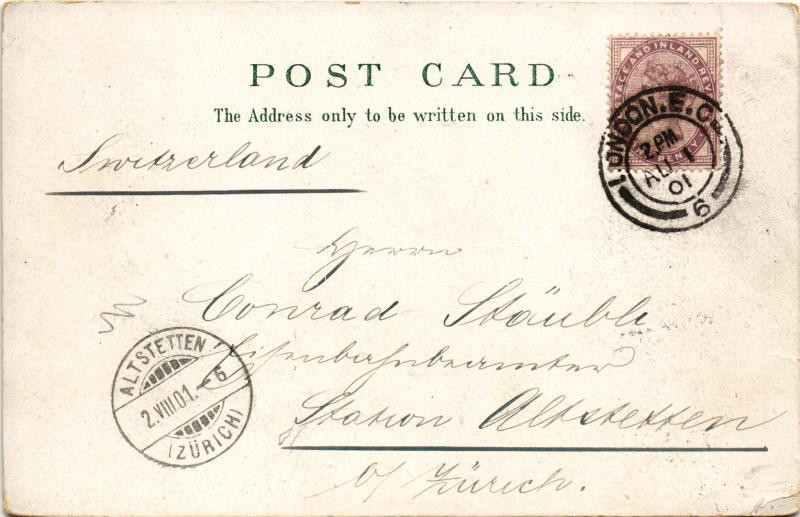 POST CARD
The Address only to be written on this side.
POSTAGE AND INLAND REVENUE
ONE PENNY
LONDON. E.C.
2. PM
AU 1
01
6
Switzerland
Herrn
Conrad Stäubli
Eisenbahnbeamter
Station Altstetten
b/ Zürich.
ALTSTETTEN
2.VIII.01.-6
(ZÜRICH)